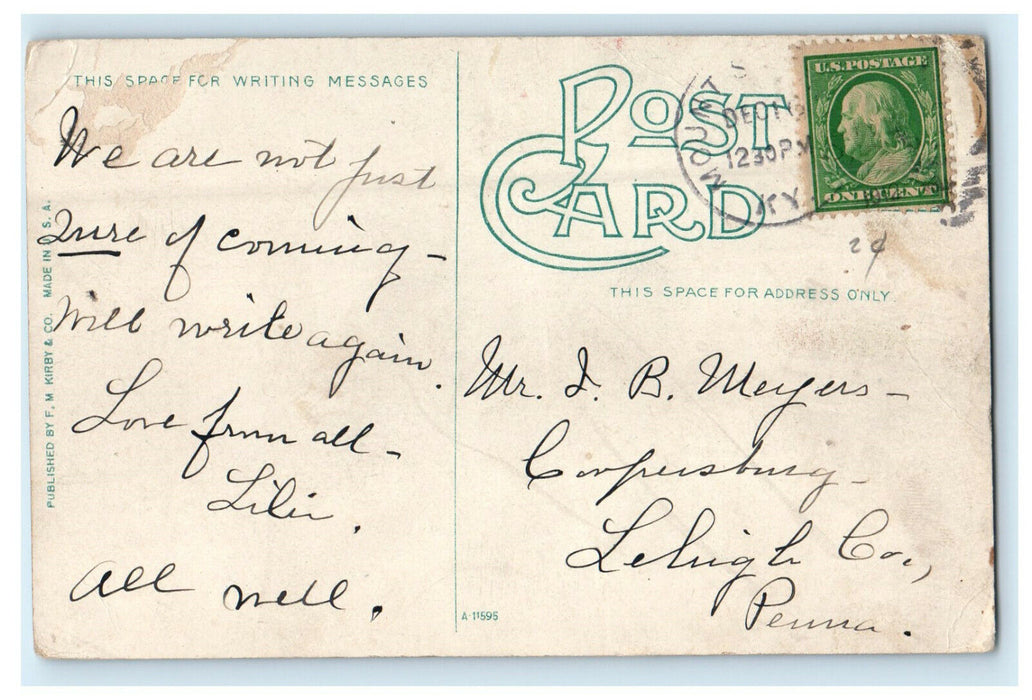 THIS SPACE FOR WRITING MESSAGES
We are not just
sure of coming -
Will write again.
Love from all -
Lilii.
All well.
PUBLISHED BY F. M. KIRBY & CO. MADE IN U. S. A.
A-11595
POST CARD
MOUNT
DEC
1230 PM
KY
U.S. POSTAGE
ONE CENT
2¢
THIS SPACE FOR ADDRESS ONLY
Mr. I. B. Meyers -
Coopersburg -
Lehigh Co.,
Penna.